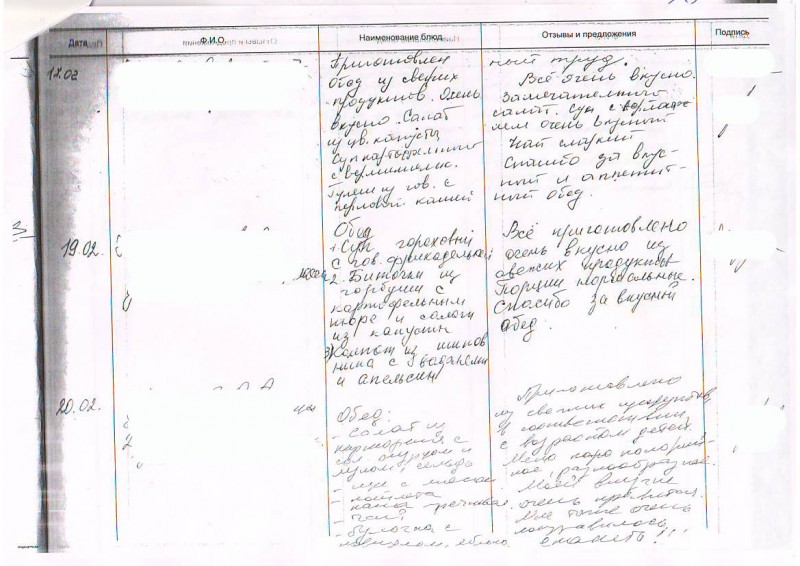 Дата
Ф.И.О.
Наименование блюд
Отзывы и предложения
Подпись
Приготовлен
обед из свежих
продуктов. Очень
вкусно. Салат
из цв. капусты
Суп картофельный
с вермишелью.
Гуляш из гов. с
перловой кашей
ный труд.
Всё очень вкусно.
Замечательный
салат. Суп с
очень вкусный
Чай сладкий
Спасибо за вкус-
ный и аппетит-
ный обед.
19.02.
Обед
1. Суп гороховый
с гов. фрикаделькой
2. Биточки из
горбуши с
картофельным
пюре и салат
из капусты
3) Компот из шипов
ника с
и апельсин
Всё приготовлено
очень вкусно из
свежих продуктов
Порции нормальные.
Спасибо за вкусный
обед.
20.02.
Обед:
- Салат из
картофеля с
сол огурцом и
луком, сельдь
- щи с мясом
- котлета
каша гречневая
- чай
- булочка с
повидлом, яблоко
Приготовлено
из свежих продуктов,
в соответствии
с возрастом детей.
Меню
разнообразное.
Моей внучке
очень нравится.
Мне тоже очень
понравилось,
спасибо!!